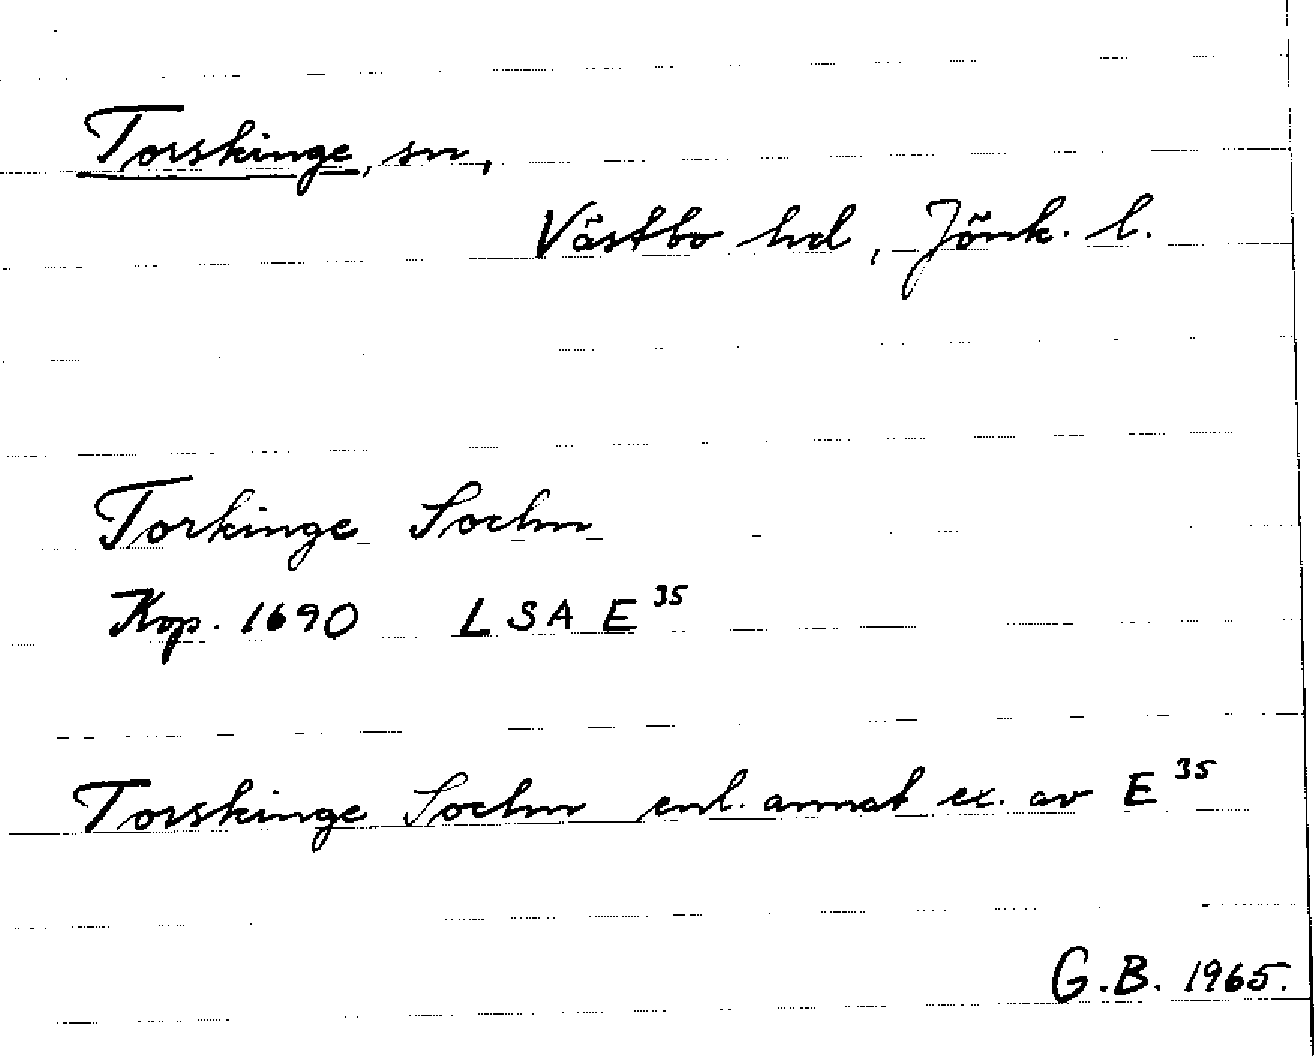 Torskinge, sn,
Västbo hd, Jönk. l.
Torkinge Sochn
Kop. 1690 LSA E 35
Torskinge Sochn enl. annat ex. av E 35
G.B. 1965.